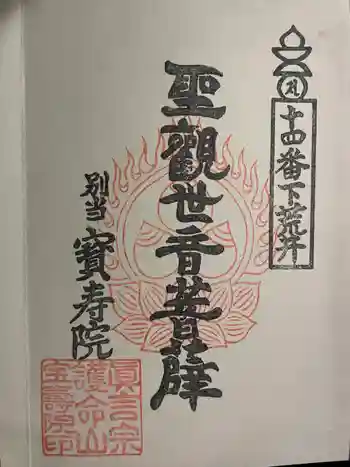 十四番下荒井
聖觀世音菩薩
別当 寳寿院
真言宗
護命山
宝壽院印